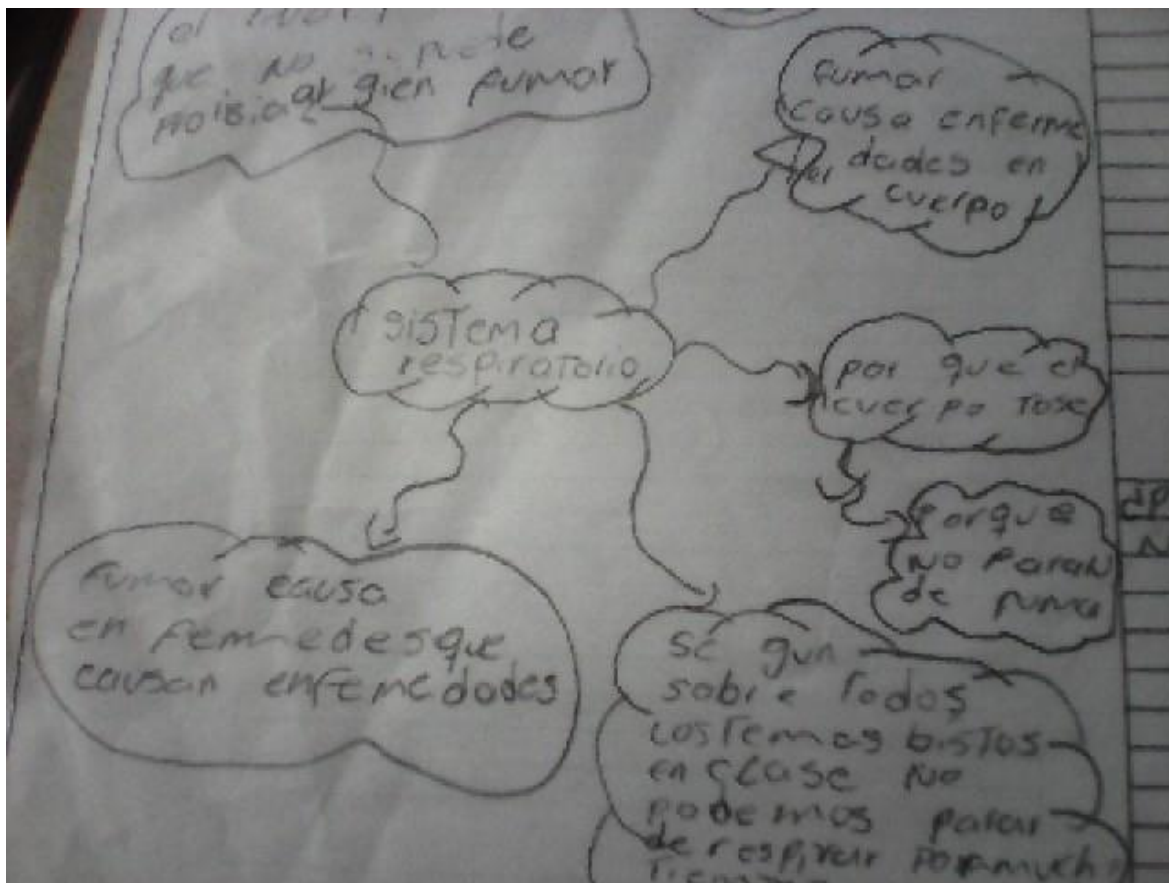 que no puede
gien fumar
fumar
causa enferme
dades en
cuerpo
sistema
respiratorio
por que el
cuerpo tose
Porque
no paran
de
Fumar causa
en femedesque
causan enfemedades
se gun
sobre todos
los temas bistos
en clase no
podemos parar
de respirar